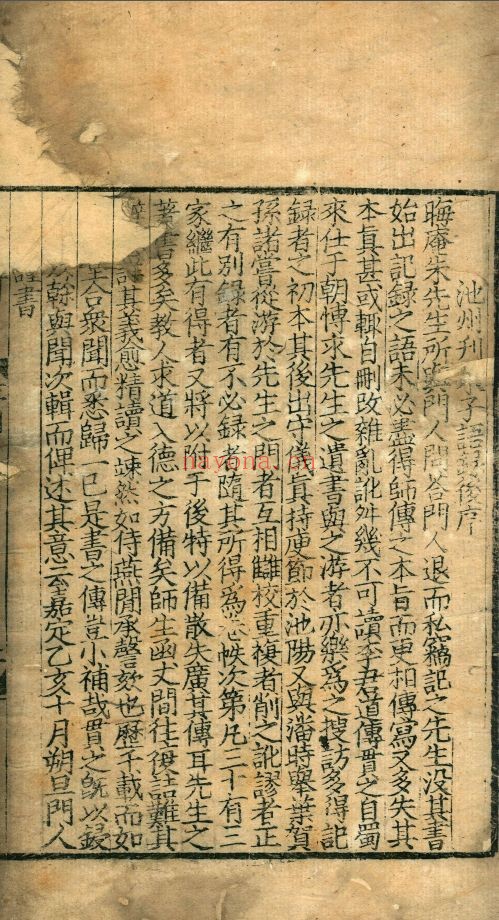 池州刊子語録後序
晦庵朱先生所與門人問荅門人退而私竊記之先生没其書
始出記録之語未必盡得師傳之本旨而更相傳寫又多失其
本真甚或輒自刪改雜亂訛舛幾不可讀李君道傳貫之自蜀
來仕于朝博求先生之遺書與之游者亦樂爲之搜訪多得記
録者之初本其後出守儀真持庾節於池陽又與潘時舉葉賀
孫諸嘗從游於先生之門者互相讎校重複者削之訛謬者正
之有別録者有不必録者隨其所得爲卷帙次第凡三十有三
家繼此有得者又將以附于後特以備散失廣其傳耳先生之
著書多矣教人求道入德之方備矣師生函丈間往復詰難其
其義愈精讀之竦然如侍燕閒承謦欬也歷千載而如
堂合衆聞而悉歸一己是書之傳豈小補哉貫之既以録
榦與聞次輯而俾述其意云嘉定乙亥十月朔旦門人
書
nayona.cn